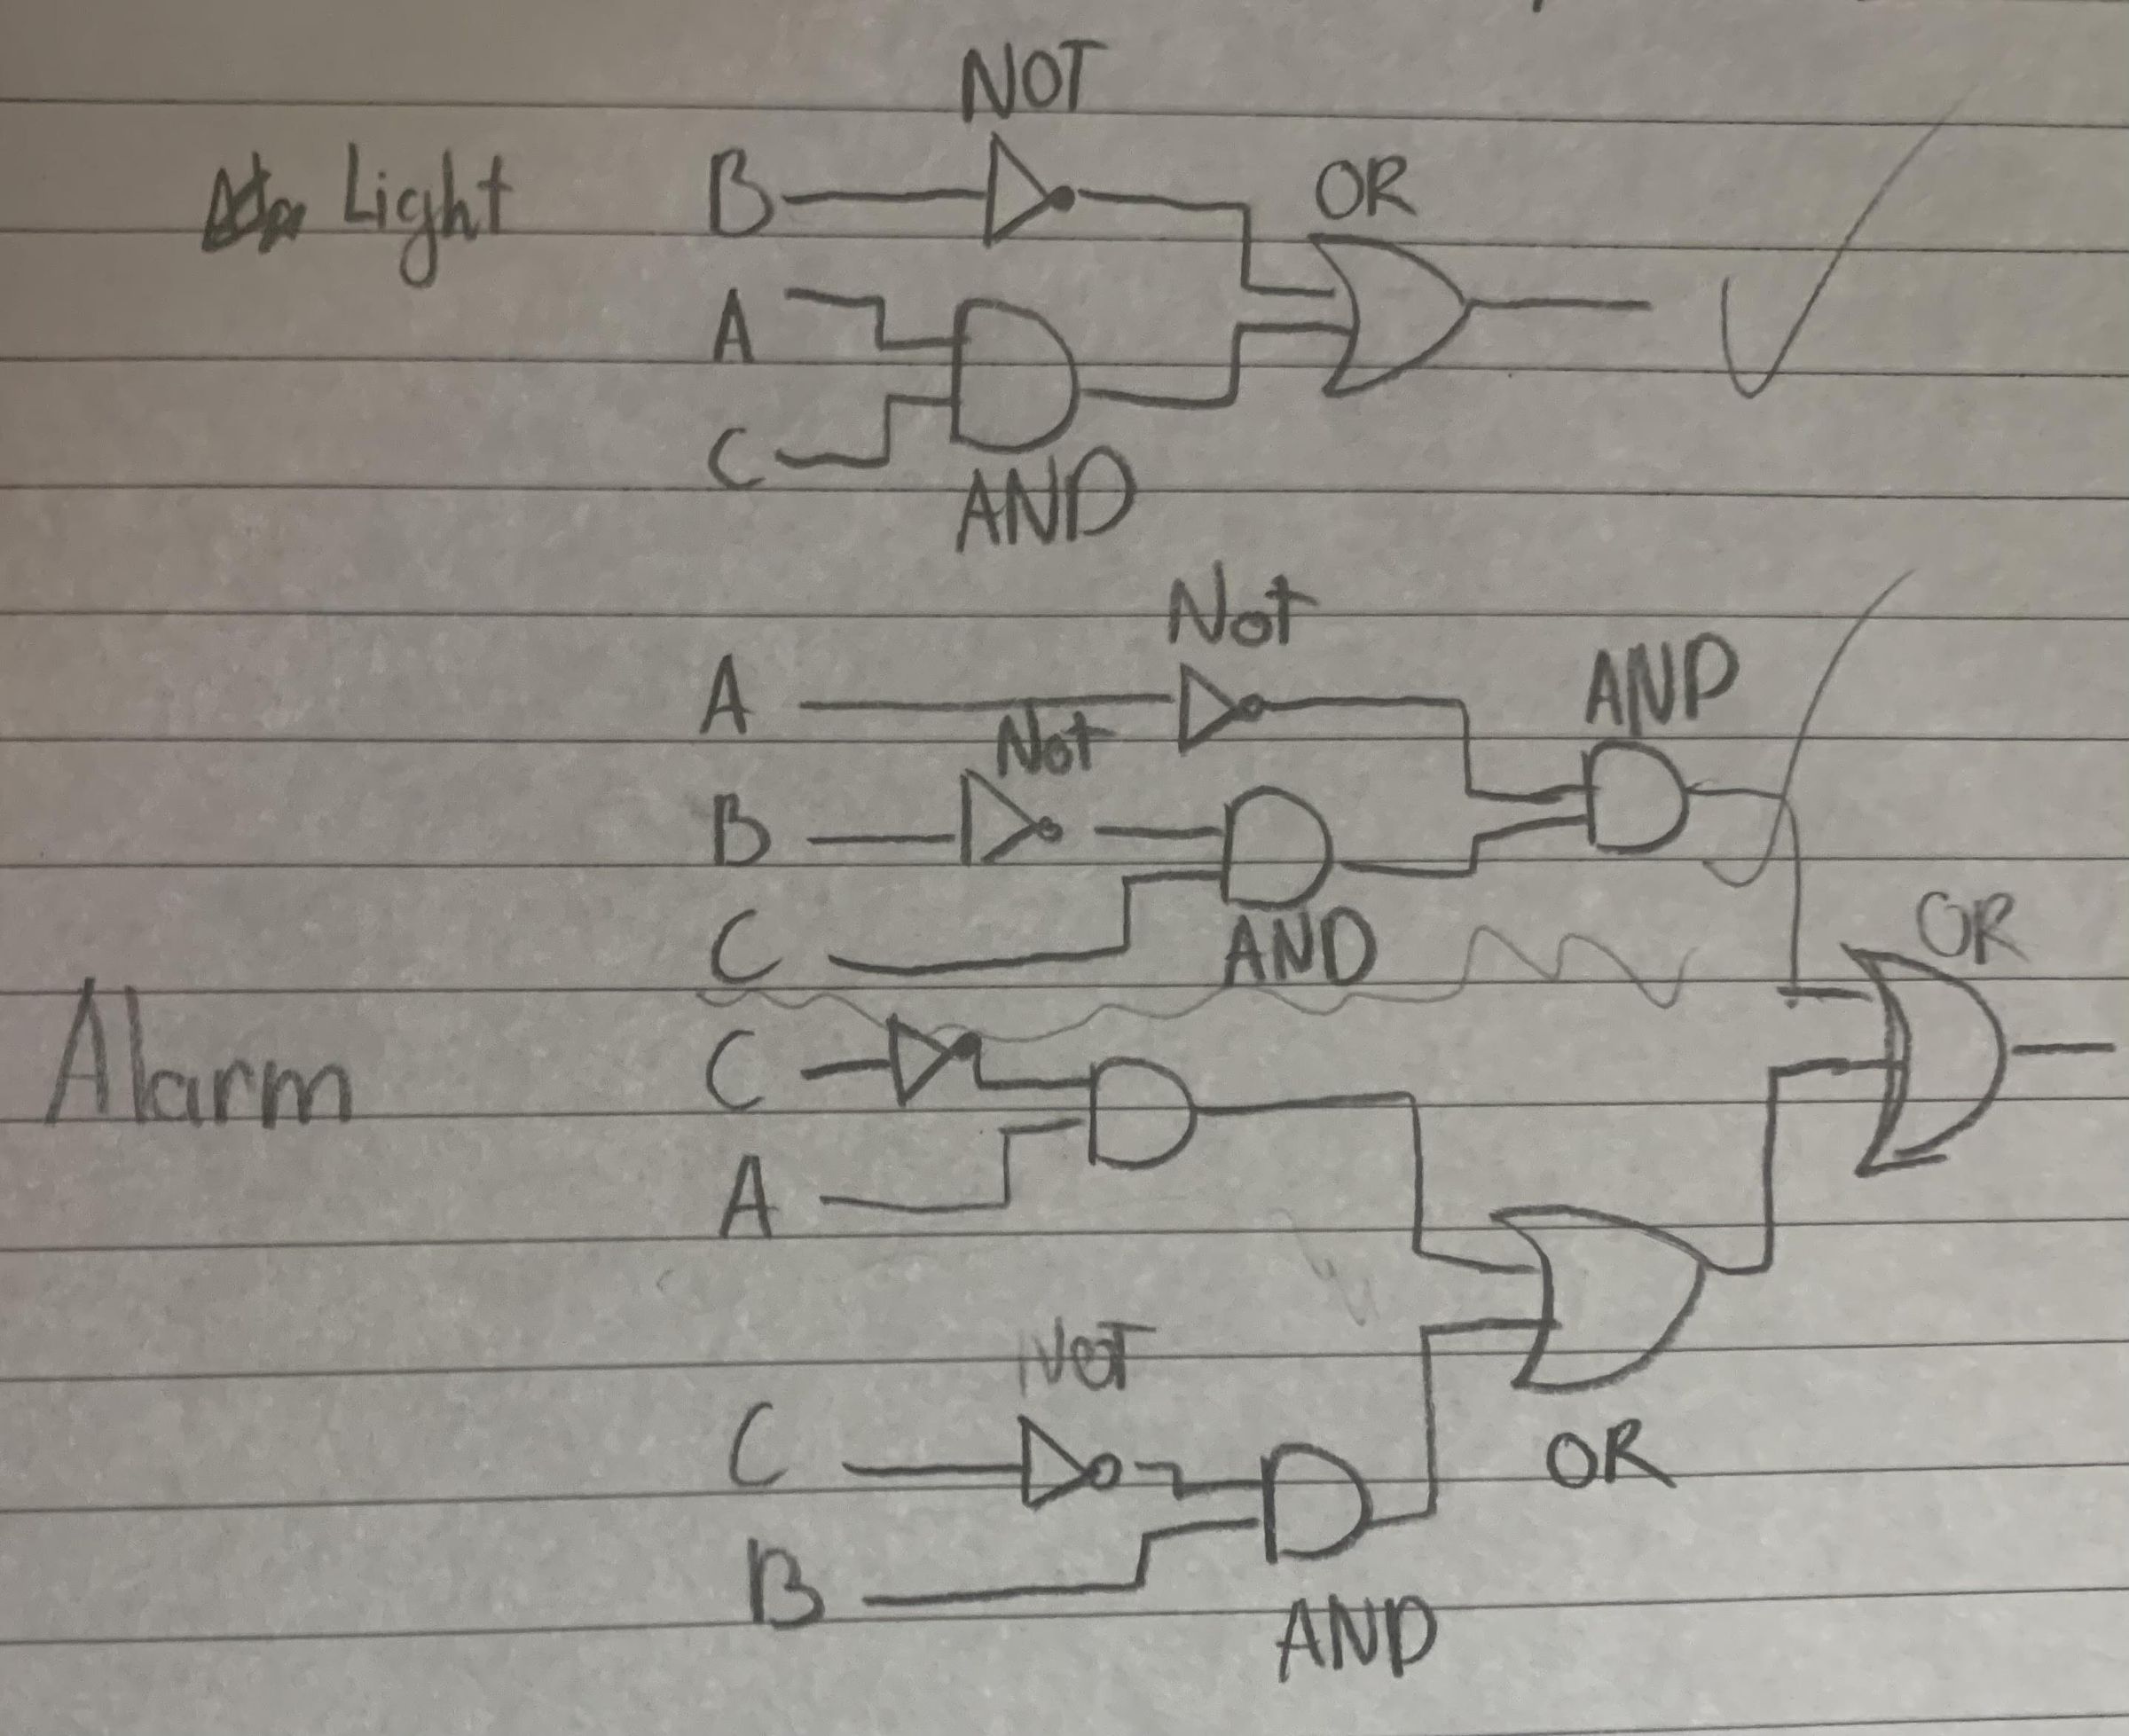 NOT
Light B OR
A
C
AND
Not
A AND
Not
B
C AND
OR
Alarm C
A
NOT
C OR
B
AND